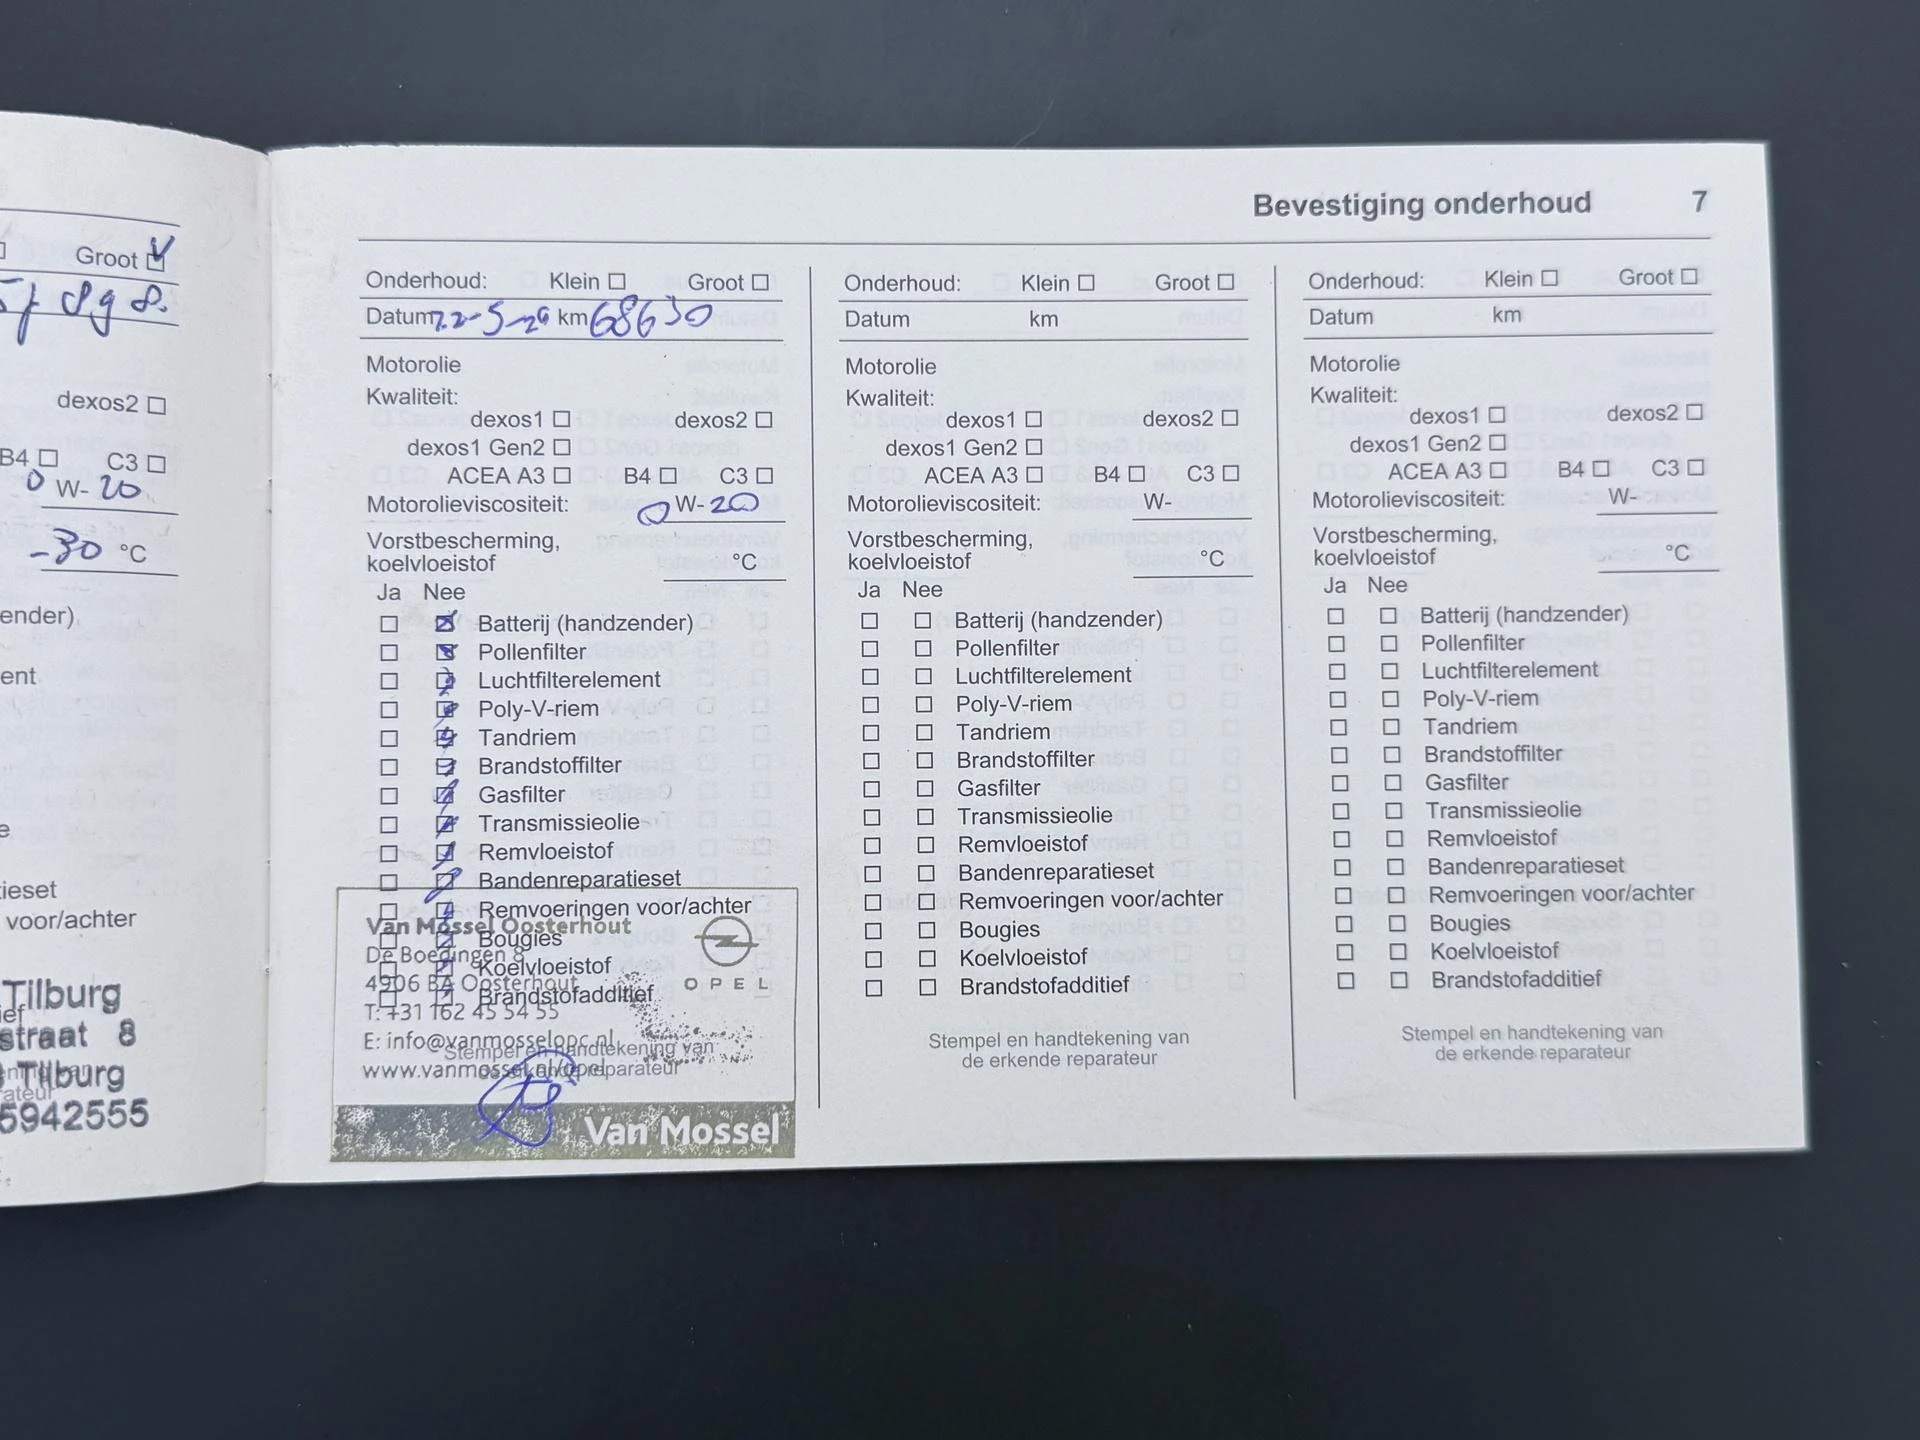 Groot
dexos2
B4 C3
0 W- 20
-30 °C
ender)
ent
e
ieset
voor/achter
Tilburg
straat 8
Tilburg
5942555
Bevestiging onderhoud 7
Onderhoud: Klein Groot
Datum km 68630
Motorolie
Kwaliteit:
dexos1 dexos2
dexos1 Gen2
ACEA A3 B4 C3
Motorolieviscositeit: 0 W- 20
Vorstbescherming,
koelvloeistof °C
Ja Nee
Batterij (handzender)
Pollenfilter
Luchtfilterelement
Poly-V-riem
Tandriem
Brandstoffilter
Gasfilter
Transmissieolie
Remvloeistof
Bandenreparatieset
Remvoeringen voor/achter
Bougies
Koelvloeistof
Brandstofadditief
Stempel en handtekening van
de erkende reparateur
Van Mossel Oosterhout
De Boedingen 8
4906 BA Oosterhout
T: +31 162 45 54 55
E: info@vanmosselopc.nl
www.vanmossel.nl/opel
OPEL
Van Mossel
Onderhoud: Klein Groot
Datum km
Motorolie
Kwaliteit:
dexos1 dexos2
dexos1 Gen2
ACEA A3 B4 C3
Motorolieviscositeit: W-
Vorstbescherming,
koelvloeistof °C
Ja Nee
Batterij (handzender)
Pollenfilter
Luchtfilterelement
Poly-V-riem
Tandriem
Brandstoffilter
Gasfilter
Transmissieolie
Remvloeistof
Bandenreparatieset
Remvoeringen voor/achter
Bougies
Koelvloeistof
Brandstofadditief
Stempel en handtekening van
de erkende reparateur
Onderhoud: Klein Groot
Datum km
Motorolie
Kwaliteit:
dexos1 dexos2
dexos1 Gen2
ACEA A3 B4 C3
Motorolieviscositeit: W-
Vorstbescherming,
koelvloeistof °C
Ja Nee
Batterij (handzender)
Pollenfilter
Luchtfilterelement
Poly-V-riem
Tandriem
Brandstoffilter
Gasfilter
Transmissieolie
Remvloeistof
Bandenreparatieset
Remvoeringen voor/achter
Bougies
Koelvloeistof
Brandstofadditief
Stempel en handtekening van
de erkende reparateur